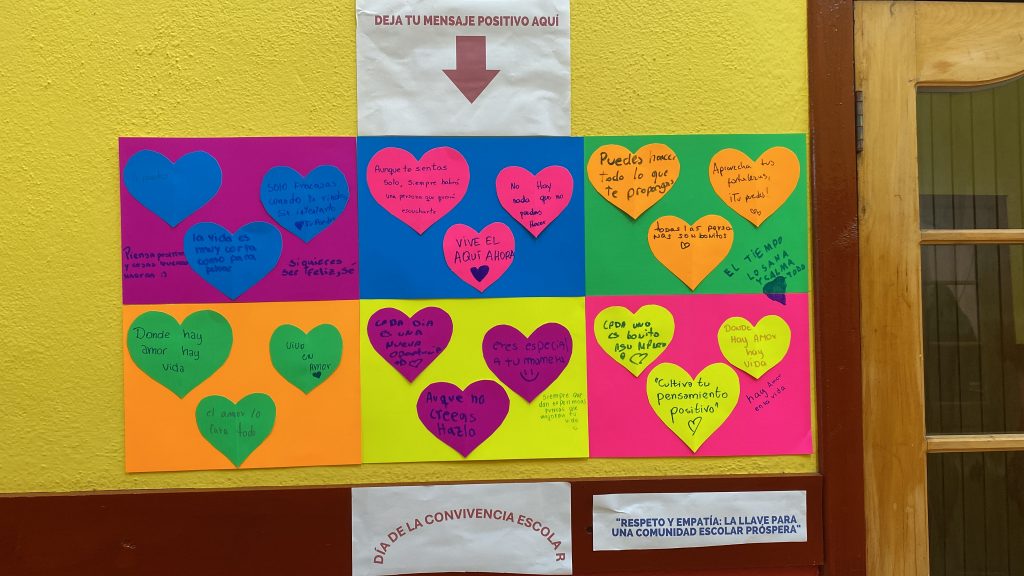 DEJA TU MENSAJE POSITIVO AQUÍ
SOLO fracasas
cuando te rindes
sin intentarlo
la vida es
muy corta
como para
Piensa positivo
y cosas buenas
Si quieres
ser feliz, sé
Aunque te sientas
Solo, siempre habrá
una persona que querrá
escucharte
No Hay
nada que no
puedas
Hacer
VIVE EL
AQUÍ AHORA
Puedes hacer
todo lo que
te propongas
Aprovecha tus
fortalezas,
¡Tu puedes!
todas las perso
nas son bonitas
EL TIEMPO
LO SANA
Y CALMA
TODO
Donde hay
amor hay
vida
Vive
en
Amor
el amor lo
todo
CADA DÍA
ES UNA
NUEVA
eres especial
a tu manera
Auque no
creeas
Hazlo
Siempre
dan
que
tu
vida
CADA UNO
ES bonito
"Cultiva tu
pensamiento
positivo"
DONDE
HAY AMOR
HAY
VIDA
hay Amor
en la vida
DÍA DE LA CONVIVENCIA ESCOLAR
"RESPETO Y EMPATÍA: LA LLAVE PARA
UNA COMUNIDAD ESCOLAR PRÓSPERA"